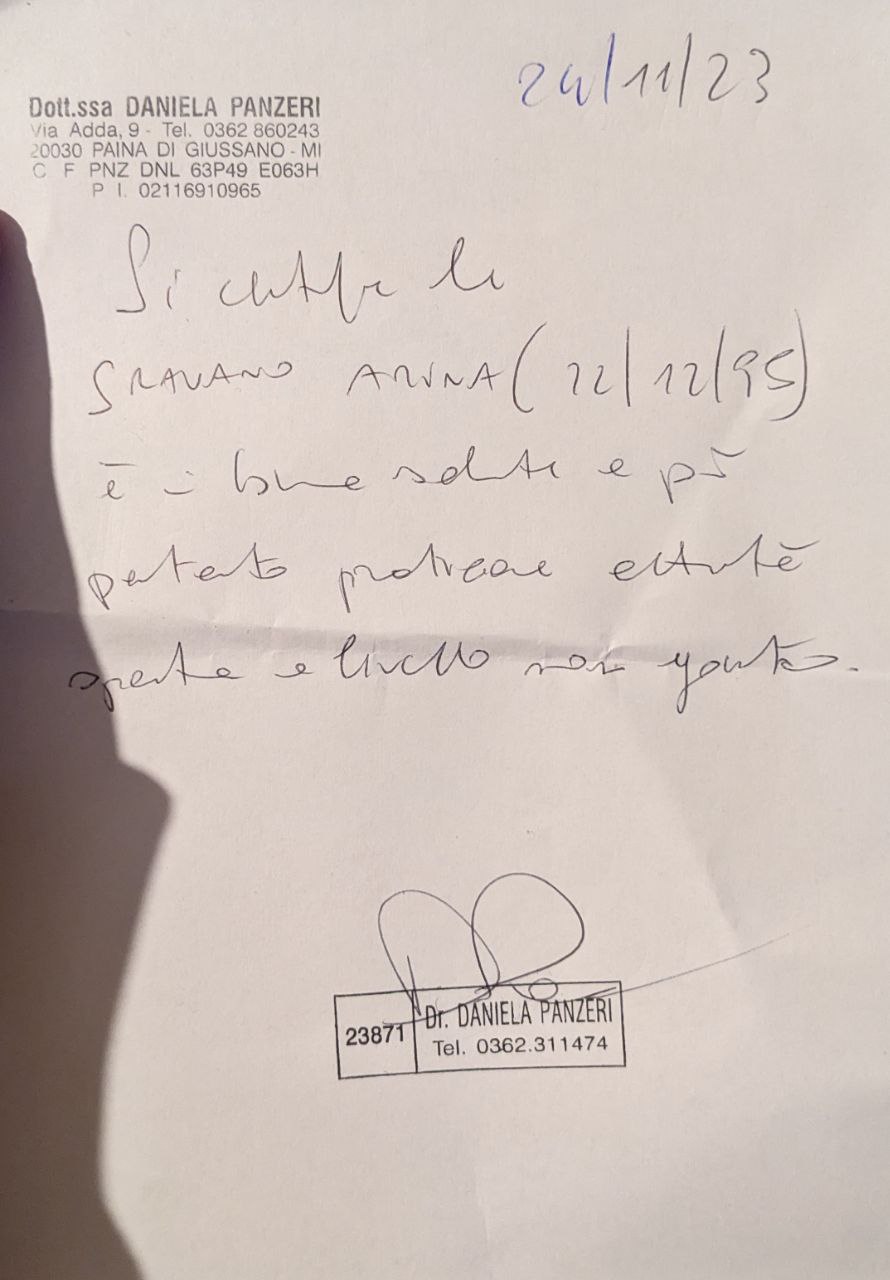 24/11/23
Dott.ssa DANIELA PANZERI
Via Adda, 9 - Tel. 0362 860243
20030 PAINA DI GIUSSANO - MI
C F PNZ DNL 63P49 E063H
P I. 02116910965
Si certifica che
SRAVANO ARUNA (22/12/95)
è in buona salute e può
pertanto praticare attività
sportiva a livello non agonistico.
23871
Dr. DANIELA PANZERI
Tel. 0362.311474